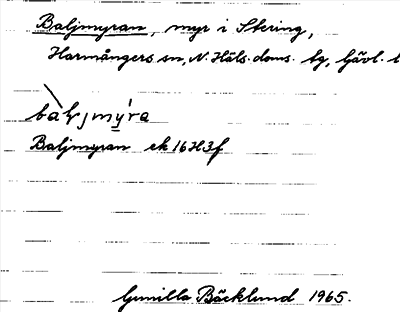 Baljmyran, myr i Stering,
Harmångers sn, N. Häls. doms. tg, Gävl. l
Baljmyran ek 16H3f
Gunilla Bäcklund 1965.